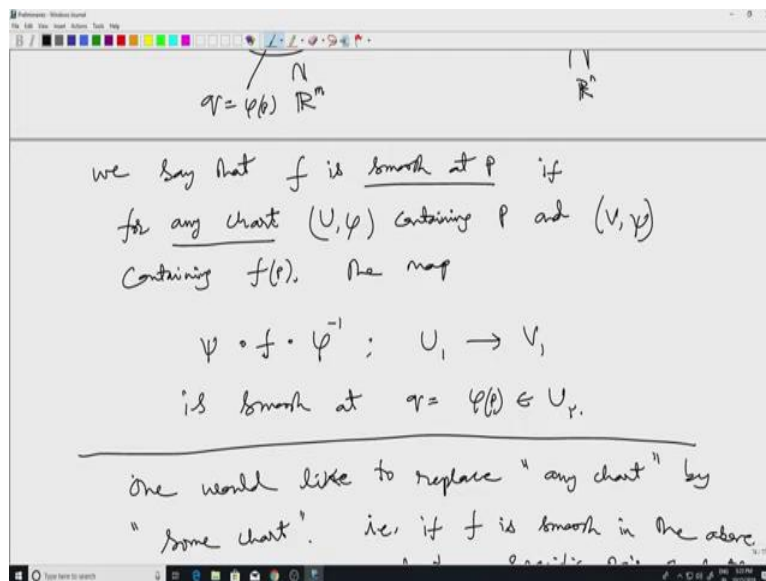 Preliminaries - Windows Journal
File Edit View Insert Actions Tools Help
q = φ(p) ℝᵐ
ℝⁿ
we say that f is smooth at p if
for any chart (U, φ) containing p and (V, ψ)
containing f(p), the map
ψ ∘ f ∘ φ⁻¹ : U₁ → V₁
is smooth at q = φ(p) ∈ U₁.
One would like to replace "any chart" by
"some chart". i.e, if f is smooth in the above
Type here to search